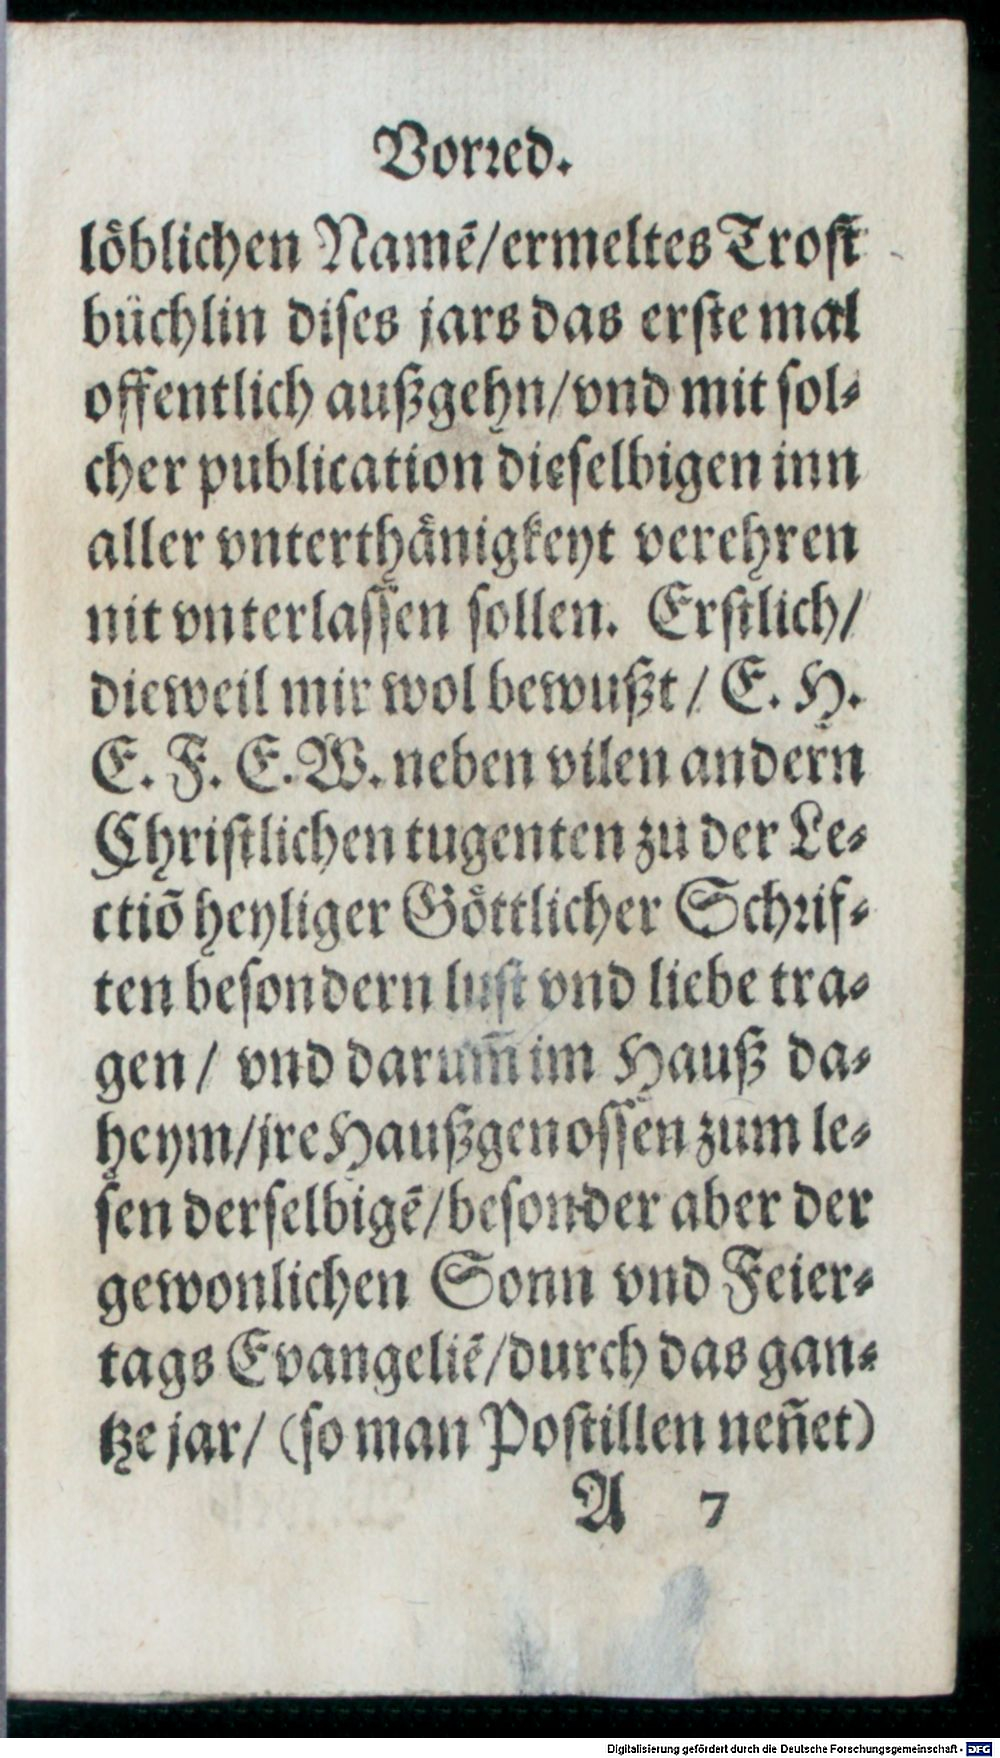 Vorꝛed.
löblichen Namē/ermeltes Troſt
büchlin diſes jars das erſte mal
offentlich außgehn/vnd mit ſol⸗
cher publication dieſelbigen inn
aller vnterthänigkeyt verehren
nit vnterlaſſen ſollen. Erſtlich/
dieweil mir wol bewußt/ E. H.
E. F. E. W. neben vilen andern
Chriſtlichen tugenten zu der Le⸗
ctiō heyliger Göttlicher Schꝛif⸗
ten beſondern luſt vnd liebe tra⸗
gen/ vnd darum̄ im Hauß da⸗
heym/jre Haußgenoſſen zum le⸗
ſen derſelbigē/beſonder aber der
gewonlichen Sonn vnd Feier⸗
tags Evangeliē/durch das gan⸗
tze jar/ (ſo man Poſtillen nen̄et)
A 7
Digitalisierung gefördert durch die Deutsche Forschungsgemeinschaft - DFG